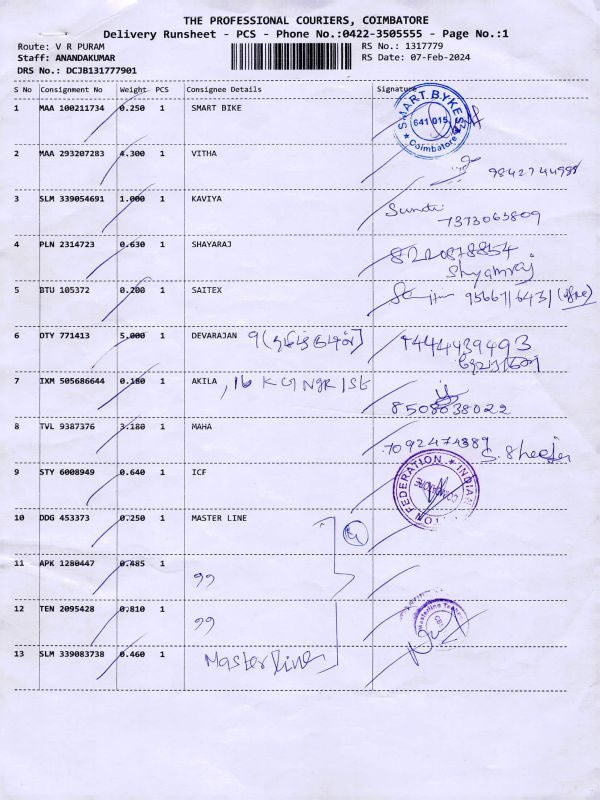 THE PROFESSIONAL COURIERS, COIMBATORE
Delivery Runsheet - PCS - Phone No.:0422-3505555 - Page No.:1
Route: V R PURAM RS No.: 1317779
Staff: ANANDAKUMAR RS Date: 07-Feb-2024
DRS No.: DCJB131777901
S No Consignment No Weight PCS Consignee Details Signature
1 MAA 100211734 0.250 1 SMART BIKE SMART BYKES 641 015 Coimbatore
2 MAA 293207283 4.300 1 VITHA
9842744988
3 SLM 339054691 1.000 1 KAVIYA
7373063809
4 PLN 2314723 0.630 1 SHAYARAJ 8220878854
Shyamraj
5 BTU 105372 0.200 1 SAITEX
6 OTY 771413 5.000 1 DEVARAJAN 9444439493
7 IXM 505686644 0.180 1 AKILA, 16 K G NgR 1St
8508038022
8 TVL 9387376 3.180 1 MAHA 7092474389
9 STY 6008949 0.640 1 ICF FEDERATION INDIAN
10 DDG 453373 0.250 1 MASTER LINE
11 APK 1280447 0.485 1 "
12 TEN 2095428 0.810 1 "
13 SLM 339083738 0.460 1 Master line